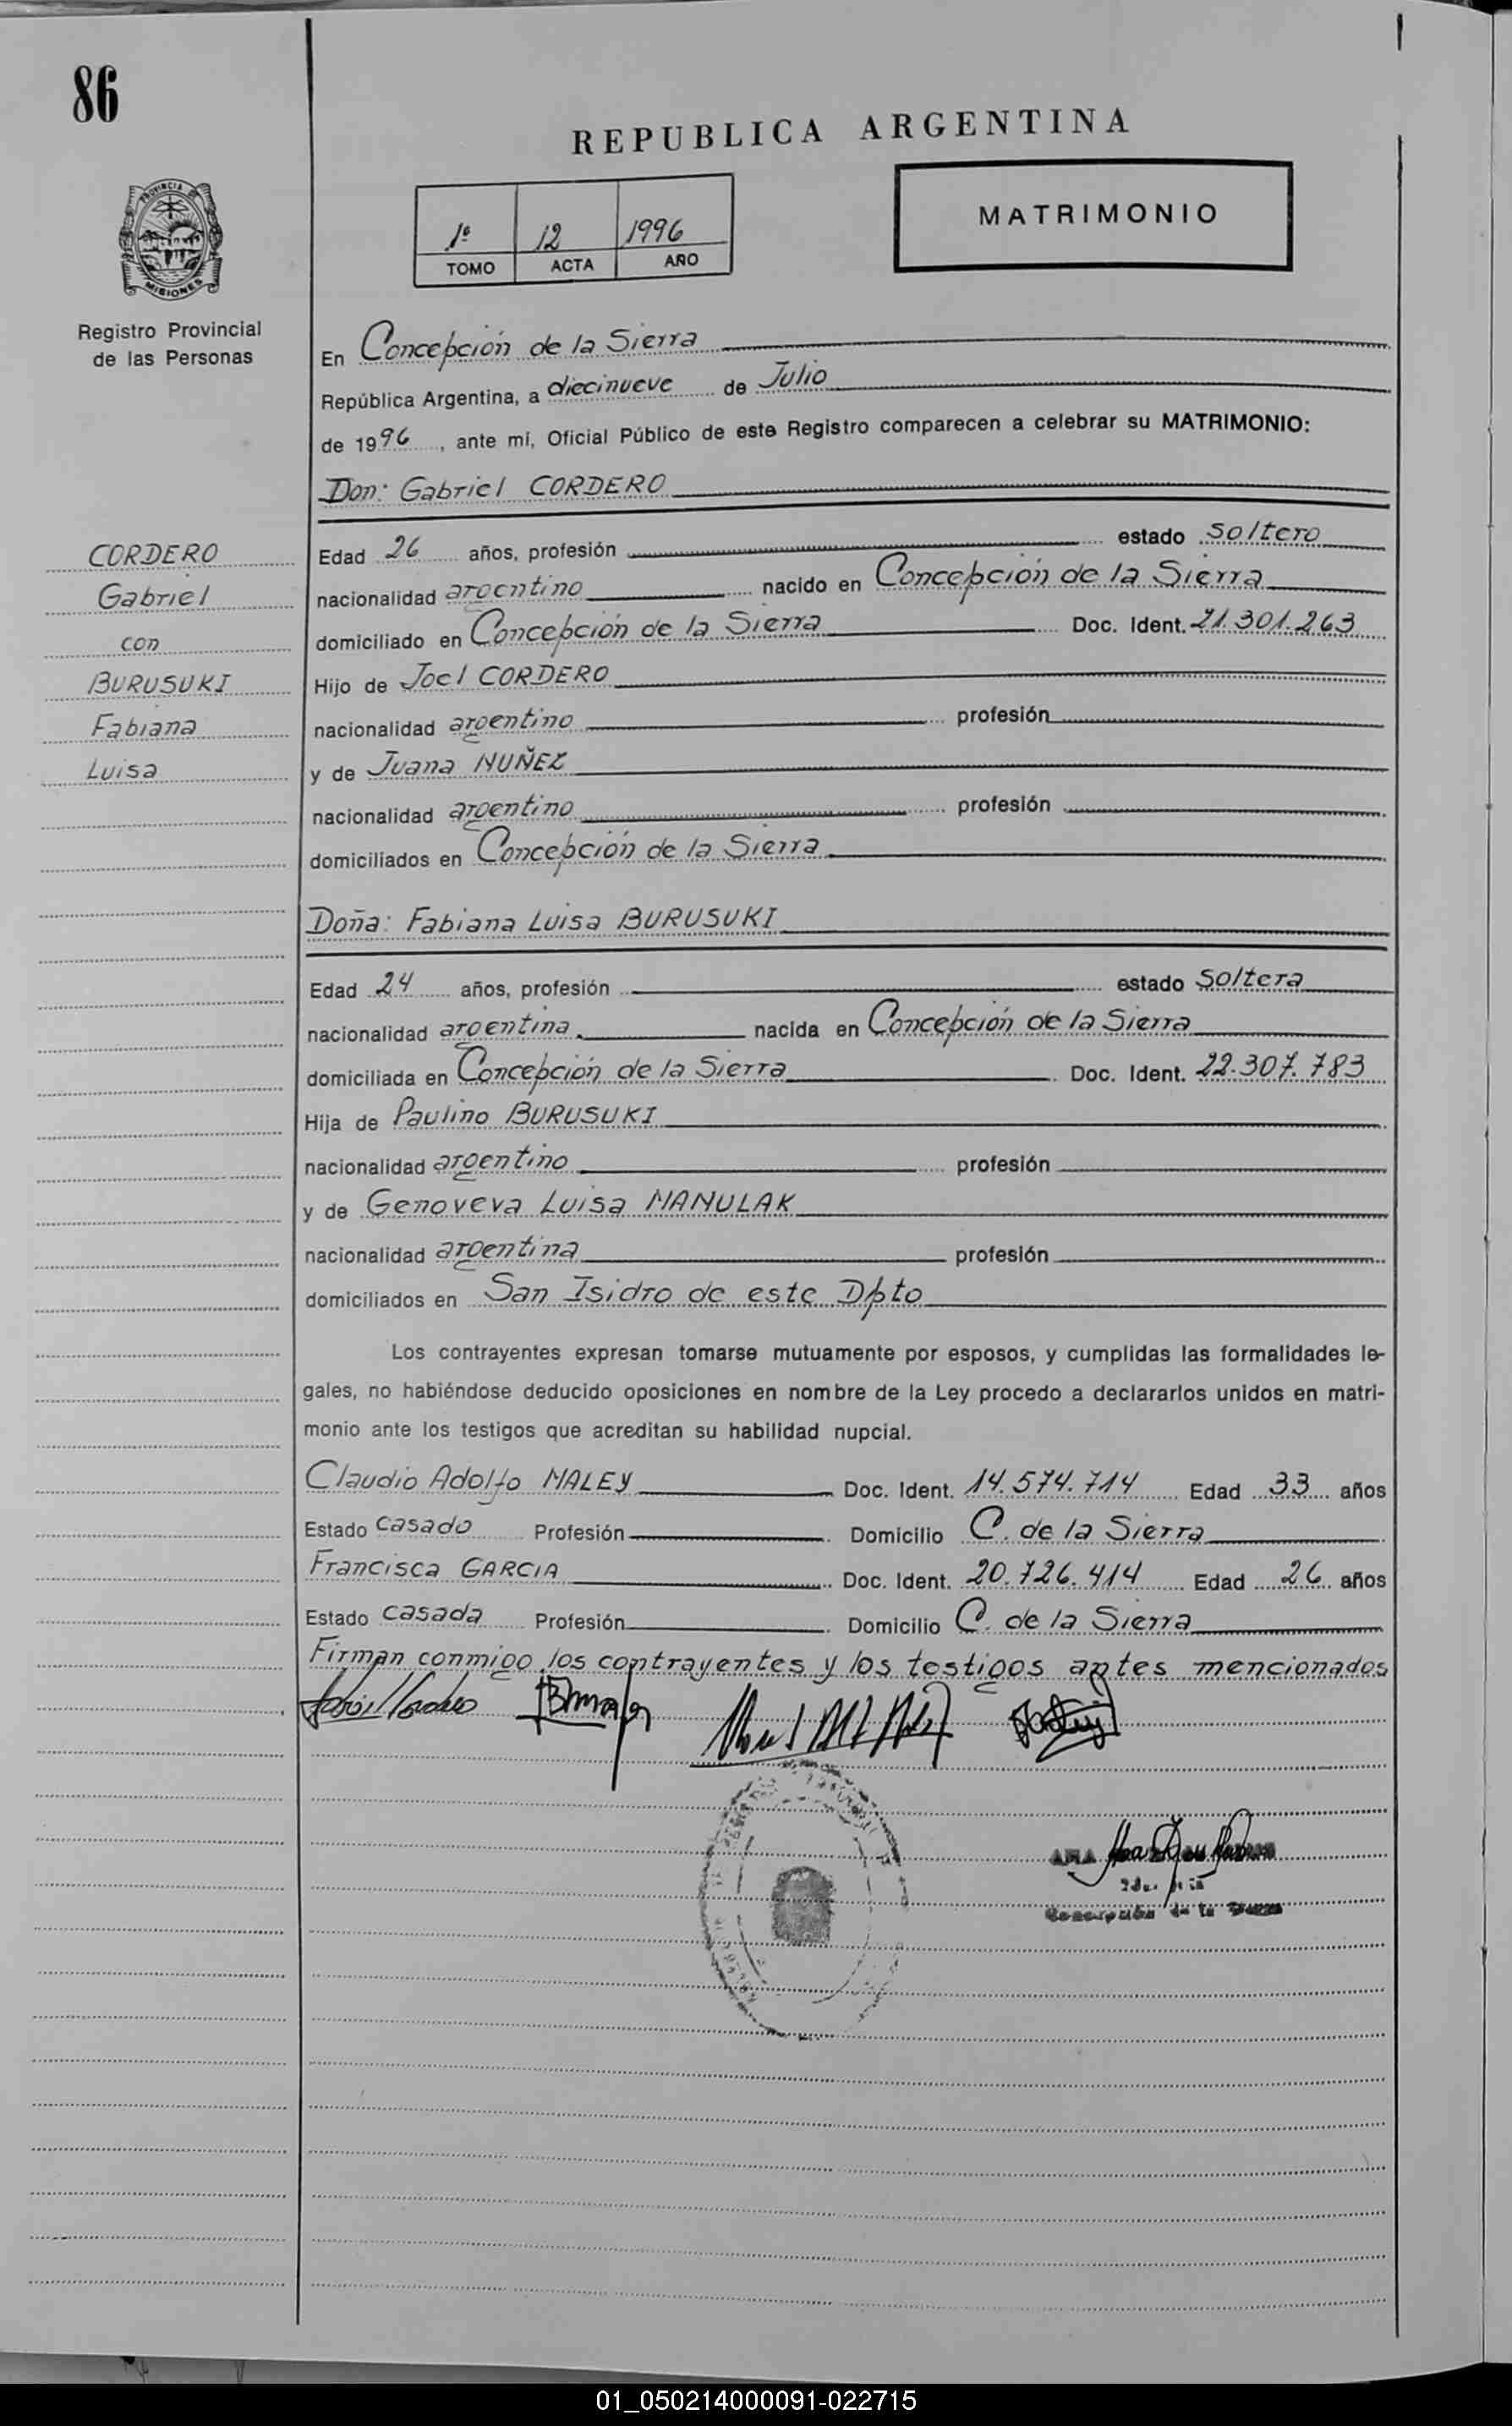 86
REPUBLICA ARGENTINA
PROVINCIA DE
MISIONES
Registro Provincial
de las Personas
1º 12 1996
TOMO ACTA AÑO
MATRIMONIO
En Concepción de la Sierra
República Argentina, a diecinueve de Julio
de 1996, ante mí, Oficial Público de este Registro comparecen a celebrar su MATRIMONIO:
Don: Gabriel CORDERO
CORDERO
Gabriel
con
BURUSUKI
Fabiana
Luisa
Edad 26 años, profesión estado soltero
nacionalidad argentino nacido en Concepción de la Sierra
domiciliado en Concepción de la Sierra Doc. Ident. 21.301.263
Hijo de Joel CORDERO
nacionalidad argentino profesión
y de Juana NUÑEZ
nacionalidad argentino profesión
domiciliados en Concepción de la Sierra
Doña: Fabiana Luisa BURUSUKI
Edad 24 años, profesión estado soltera
nacionalidad argentina nacida en Concepción de la Sierra
domiciliada en Concepción de la Sierra Doc. Ident. 22.307.783
Hija de Paulino BURUSUKI
nacionalidad argentino profesión
y de Genoveva Luisa HANULAK
nacionalidad argentina profesión
domiciliados en San Isidro de este Dpto
Los contrayentes expresan tomarse mutuamente por esposos, y cumplidas las formalidades le-
gales, no habiéndose deducido oposiciones en nombre de la Ley procedo a declararlos unidos en matri-
monio ante los testigos que acreditan su habilidad nupcial.
Claudio Adolfo MALEY Doc. Ident. 14.574.714 Edad 33 años
Estado casado Profesión Domicilio C. de la Sierra
Francisca GARCIA Doc. Ident. 20.726.414 Edad 26 años
Estado casada Profesión Domicilio C. de la Sierra
Firman conmigo los contrayentes y los testigos antes mencionados
ANA
Concepción de la Sierra
01_050214000091-022715